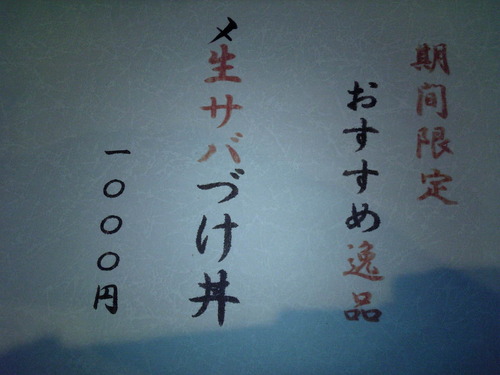 期間限定
おすすめ逸品
〆生サバづけ丼
一〇〇〇円